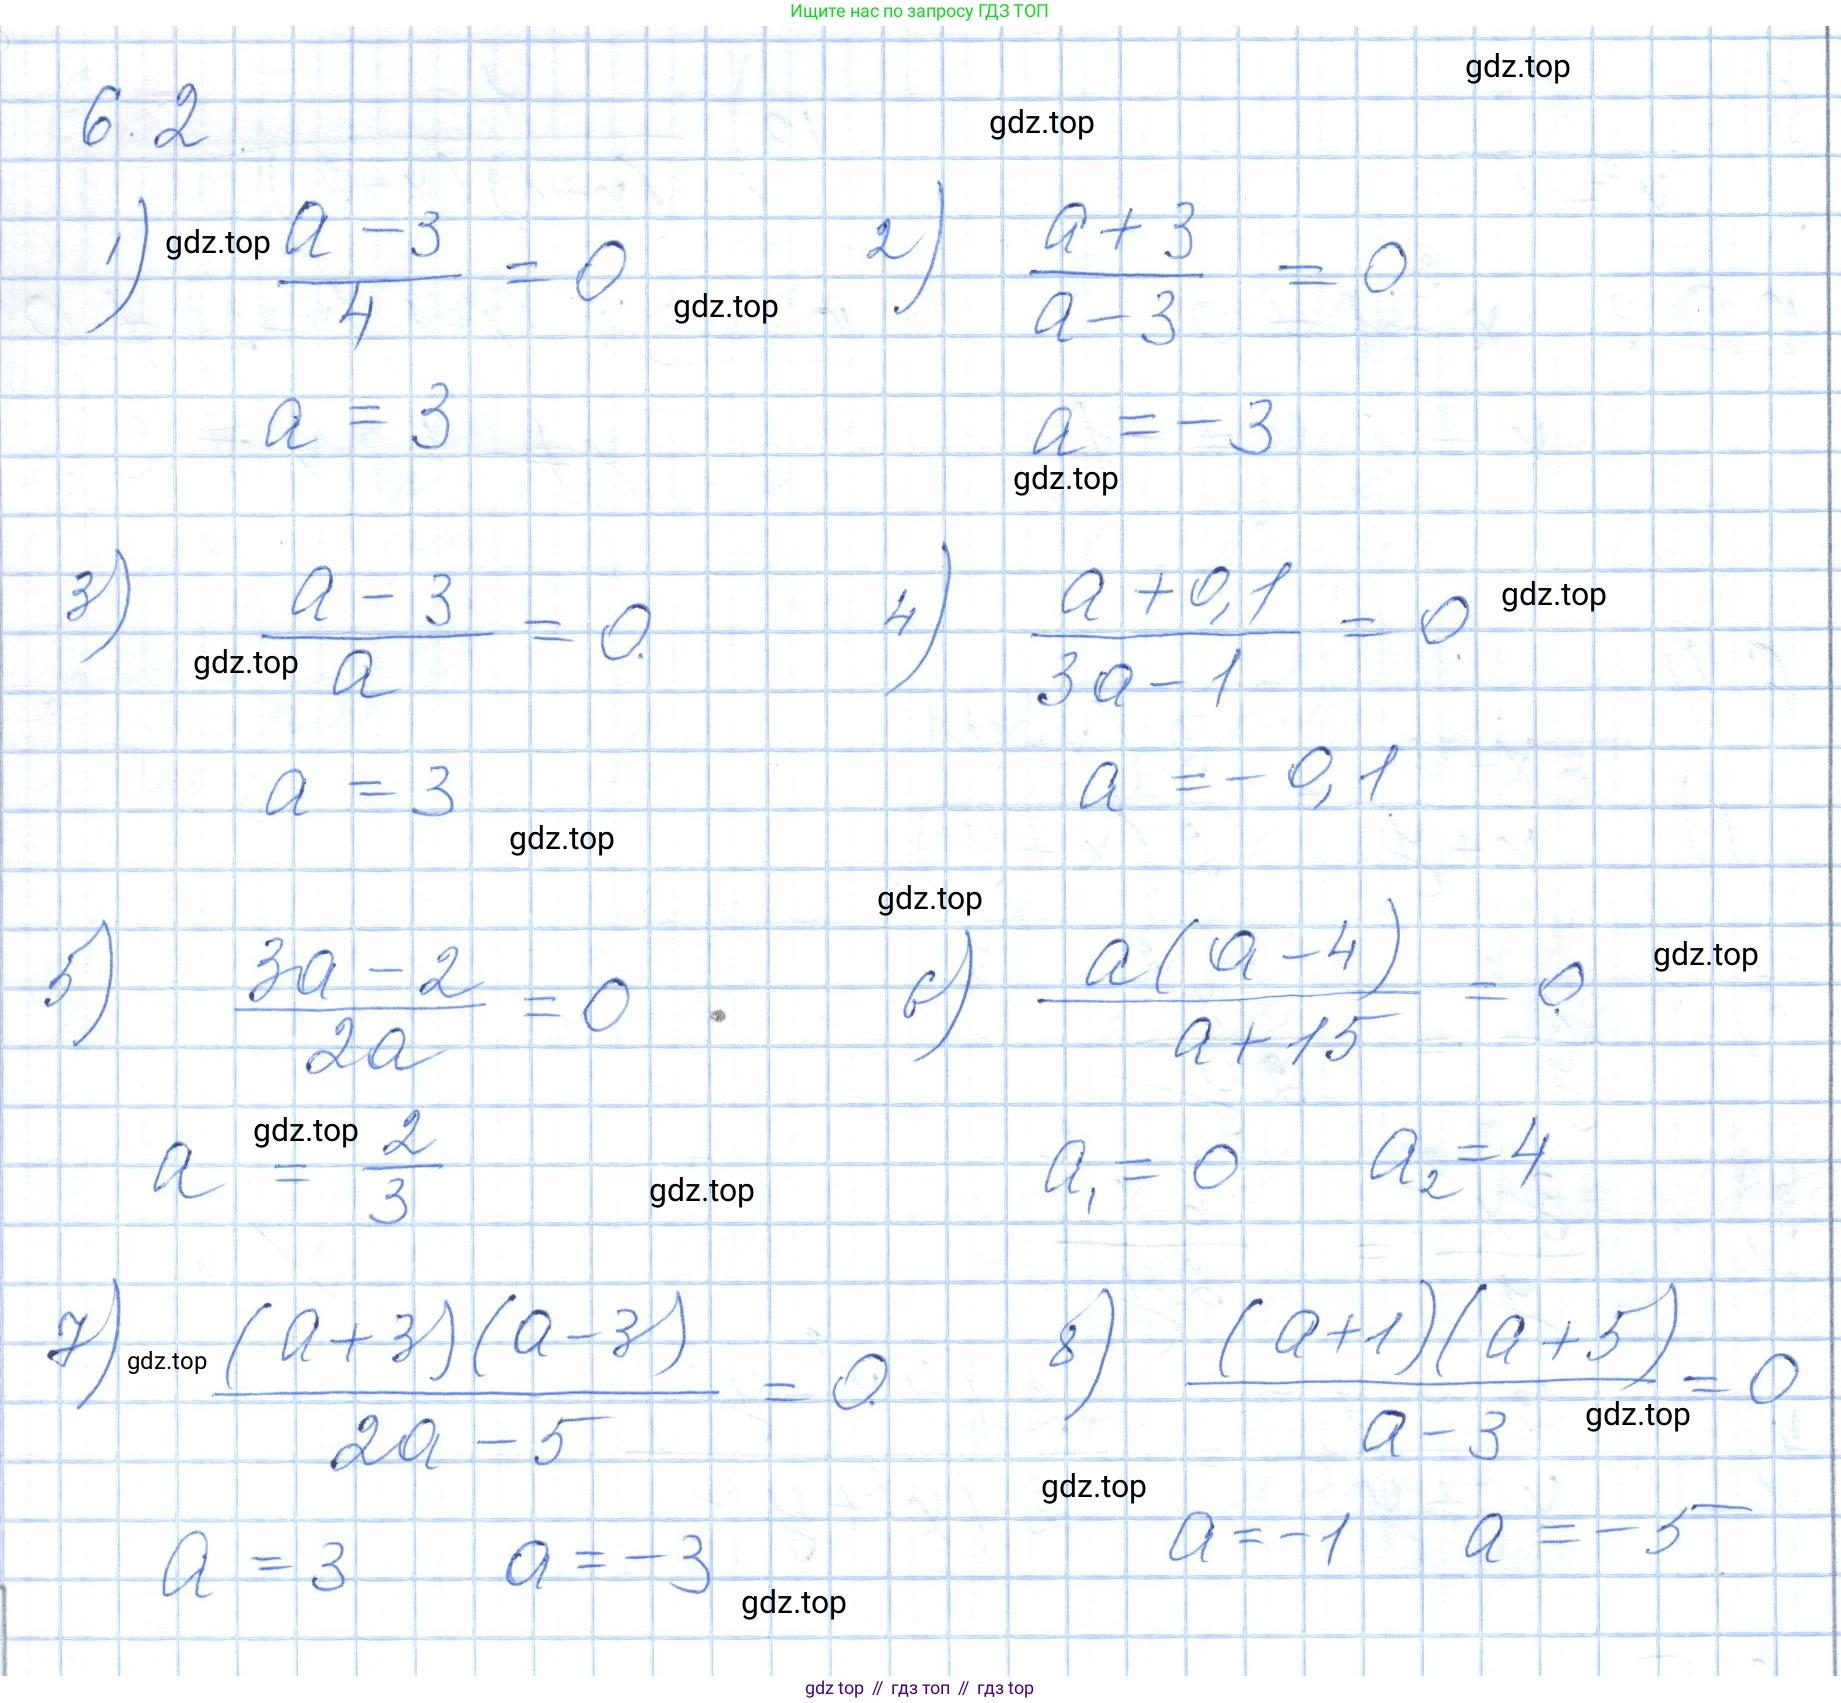 Ищите нас по запросу ГДЗ ТОП
gdz.top
6.2
gdz.top
1) gdz.top (a - 3)/4 = 0
gdz.top
2) (a + 3)/(a - 3) = 0
a = 3
a = -3
gdz.top
3) (a - 3)/a = 0
gdz.top
4) (a + 0,1)/(3a - 1) = 0
gdz.top
a = 3
a = -0,1
gdz.top
gdz.top
5) (3a - 2)/(2a) = 0
6) a(a - 4)/(a + 15) = 0
gdz.top
gdz.top
a = 2/3
gdz.top
a₁ = 0 a₂ = 4
7) gdz.top (a + 3)(a - 3)/(2a - 5) = 0
8) (a + 1)(a + 5)/(a - 3) = 0
gdz.top
gdz.top
a = 3 a = -3
a = -1 a = -5
gdz.top
gdz top // гдз топ // гдз top